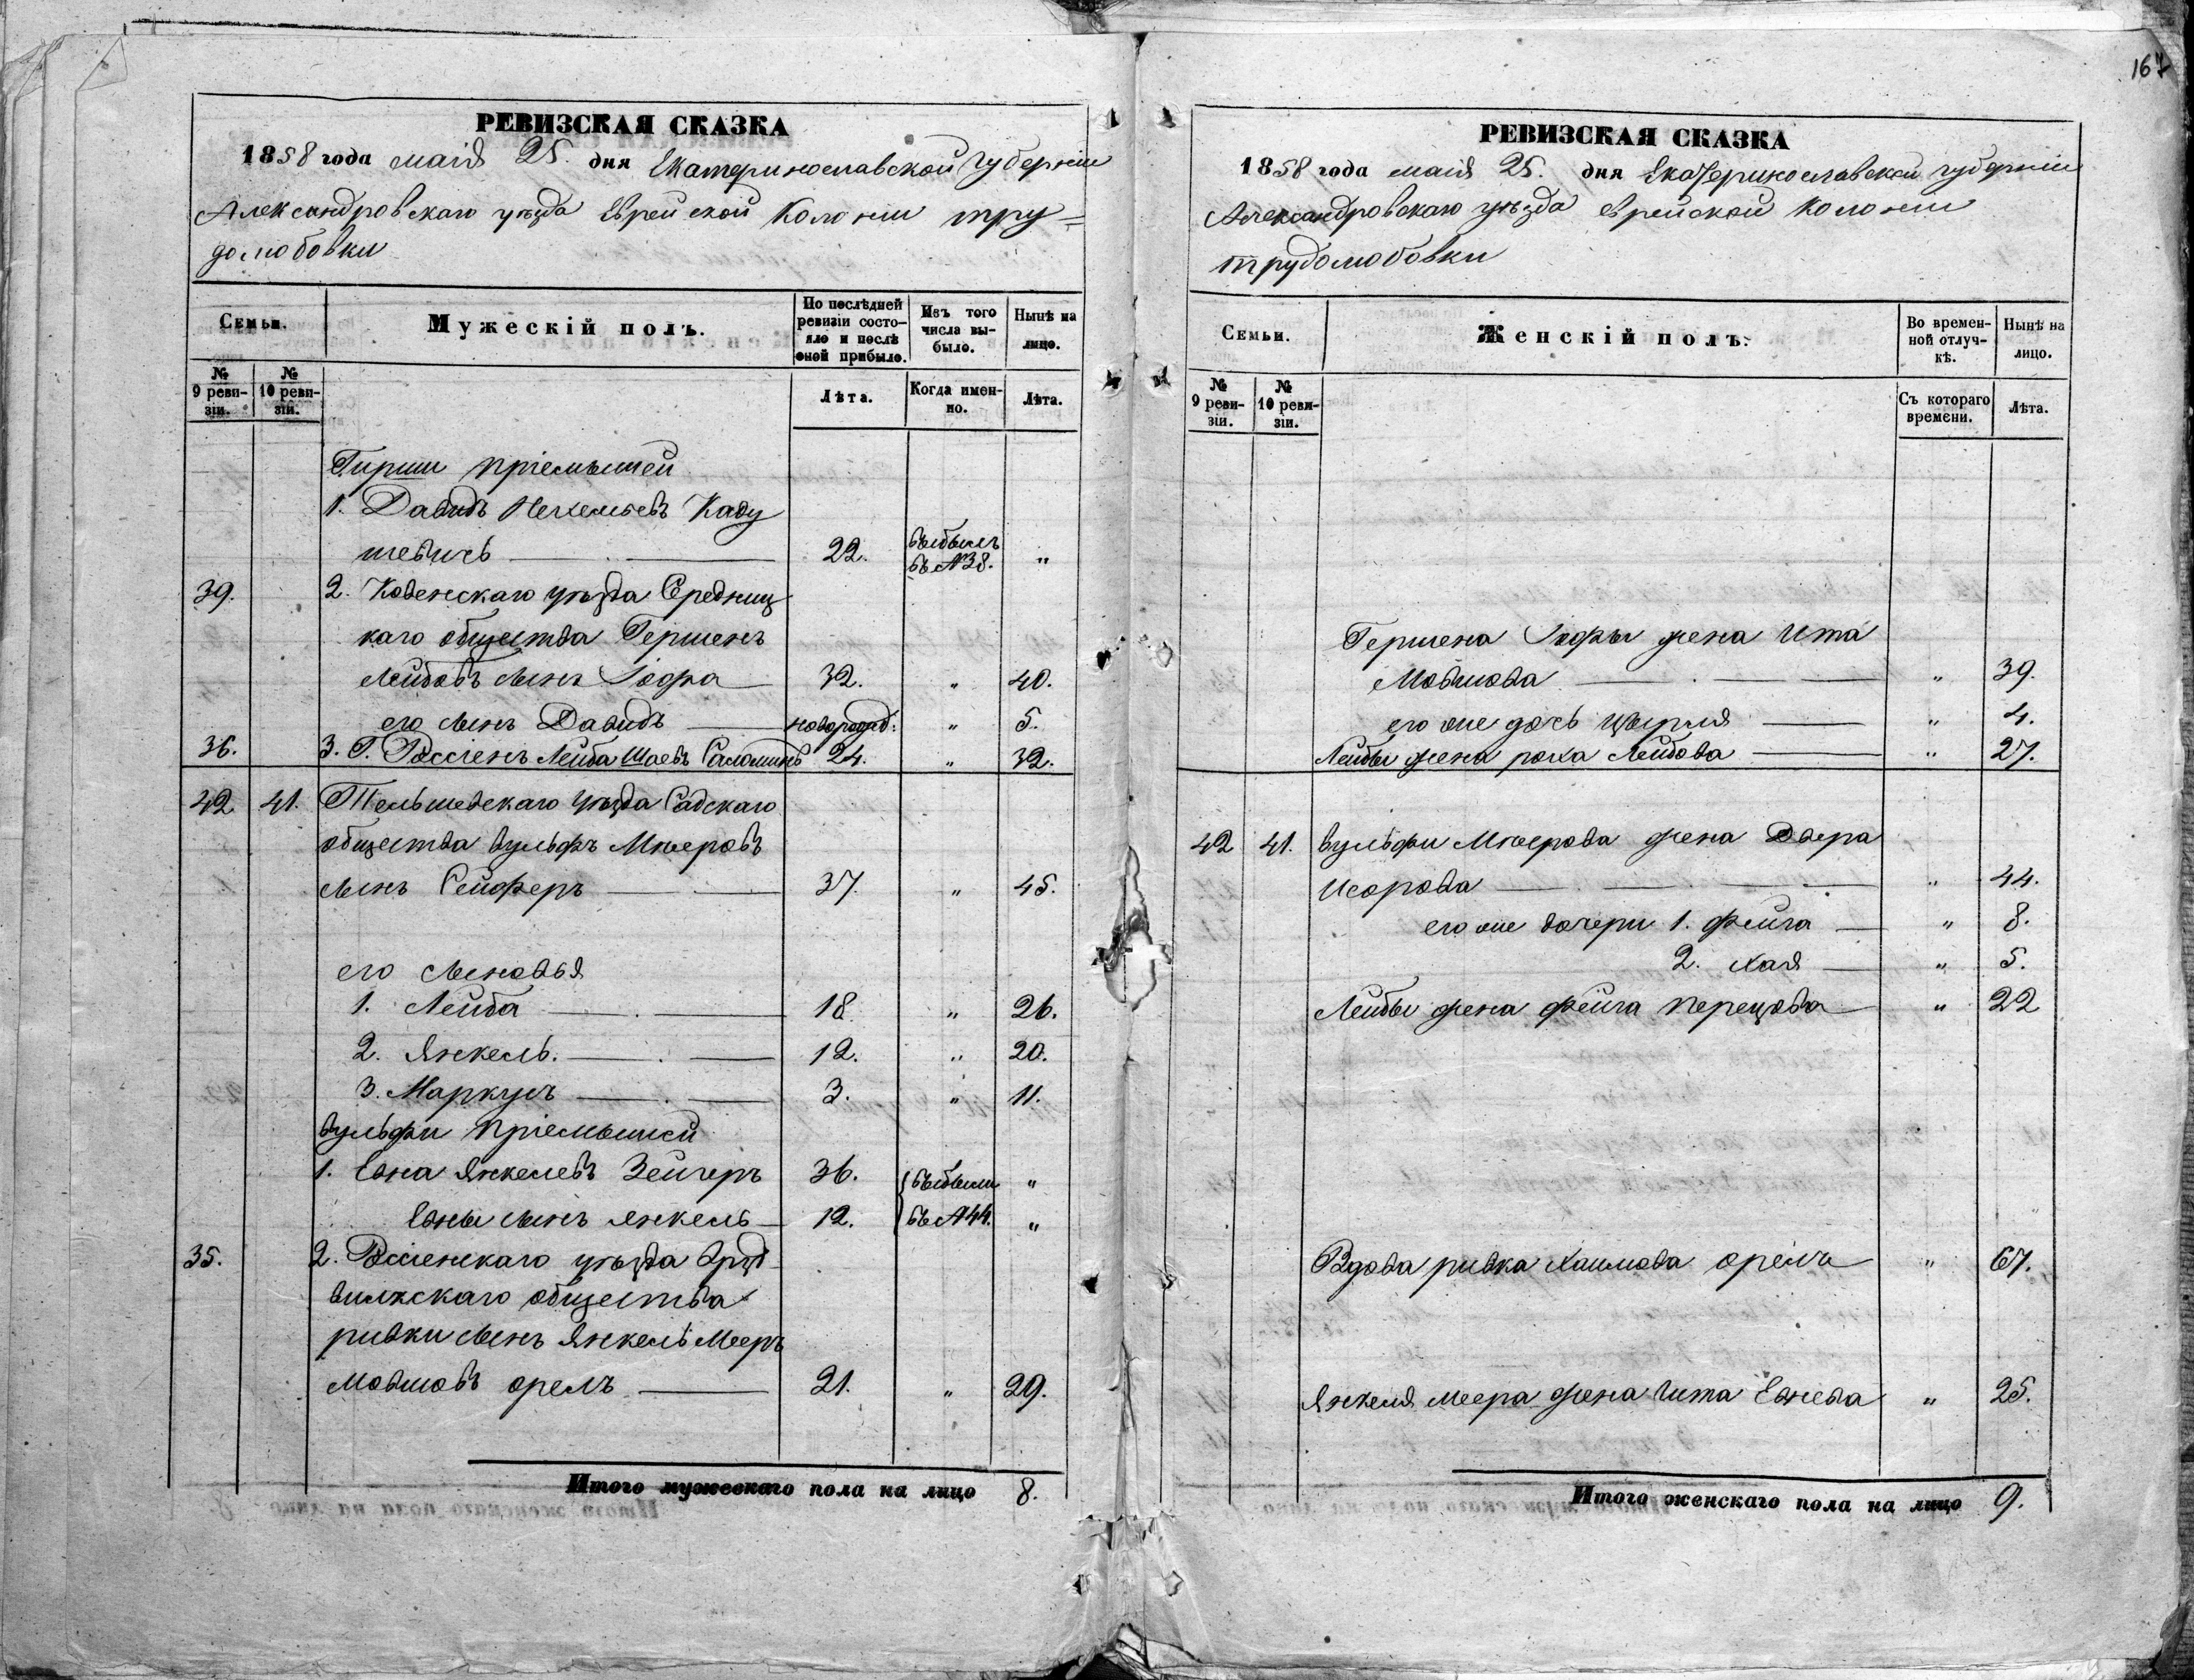 167
РЕВИЗСКАЯ СКАЗКА
1858 года маія 25. дня Екатеринославской Губерніи
Александровскаго уѣзда Еврейской Колоніи тру=
долюбовки
Семьи.
Мужескій полъ.
По послѣдней ревизіи состояло и послѣ оной прибыло.
Изъ того числа выбыло.
Нынѣ на лицо.
№ 9 ревизіи.
№ 10 ревизіи.
Лѣта.
Когда именно.
Лѣта.
Гирши пріемышей
1. Давидъ Кадушевичъ
шевичь 22. выбылъ въ №38. "
39. 2. Ковенскаго уѣзда Средниц
каго общества Гершенъ
Лейбовъ сынъ Іофа 32. " 40.
его сынъ Давидъ новорожд: " 5.
36. 3. Г. Россіенъ Лейба Шаевъ Саломинъ 24. " 32.
42 41. Тельшевскаго уѣзда Садскаго
общества Вульфъ Мѣеровъ
сынъ Сейферъ 37. " 45.
его сыновья
1. Лейба 18 " 26.
2. Янкель. 12. " 20.
3. Маркусъ 3. " 11.
Вульфи пріемыши
1. Евна Янкелевъ Зейгеръ 36. выбыли "
Евны сынъ Янкель 12. въ №44. "
35. 2. Россіенскаго уѣзда
общества
ривки сынъ Янкель Мееръ
Мовшовъ орелъ 21. " 29.
Итого мужескаго пола на лицо 8.
РЕВИЗСКАЯ СКАЗКА
1858 года маія 25. дня Екатеринославской губерніи
Александровскаго уѣзда еврейской колоніи
трудолюбовки
Семьи.
Женскій полъ.
Во временной отлучкѣ.
Нынѣ на лицо.
№ 9 ревизіи.
№ 10 ревизіи.
Съ котораго времени.
Лѣта.
Гершена Іофы жена Ита
Мовшова " 39.
его же дочь Цырля " 4.
Лейбы жена роха Лейбова " 27.
42 41. Вульфи Мѣерова жена Двера
Исорова " 44.
его же дочери 1. Фейга " 8.
2. Хая " 5.
Лейбы жена Фейга Перецова " 22
Вдова ривка Хаимова орелъ " 67.
Янкеля Меера жена Ита Евнева " 25.
Итого женскаго пола на лицо 9.